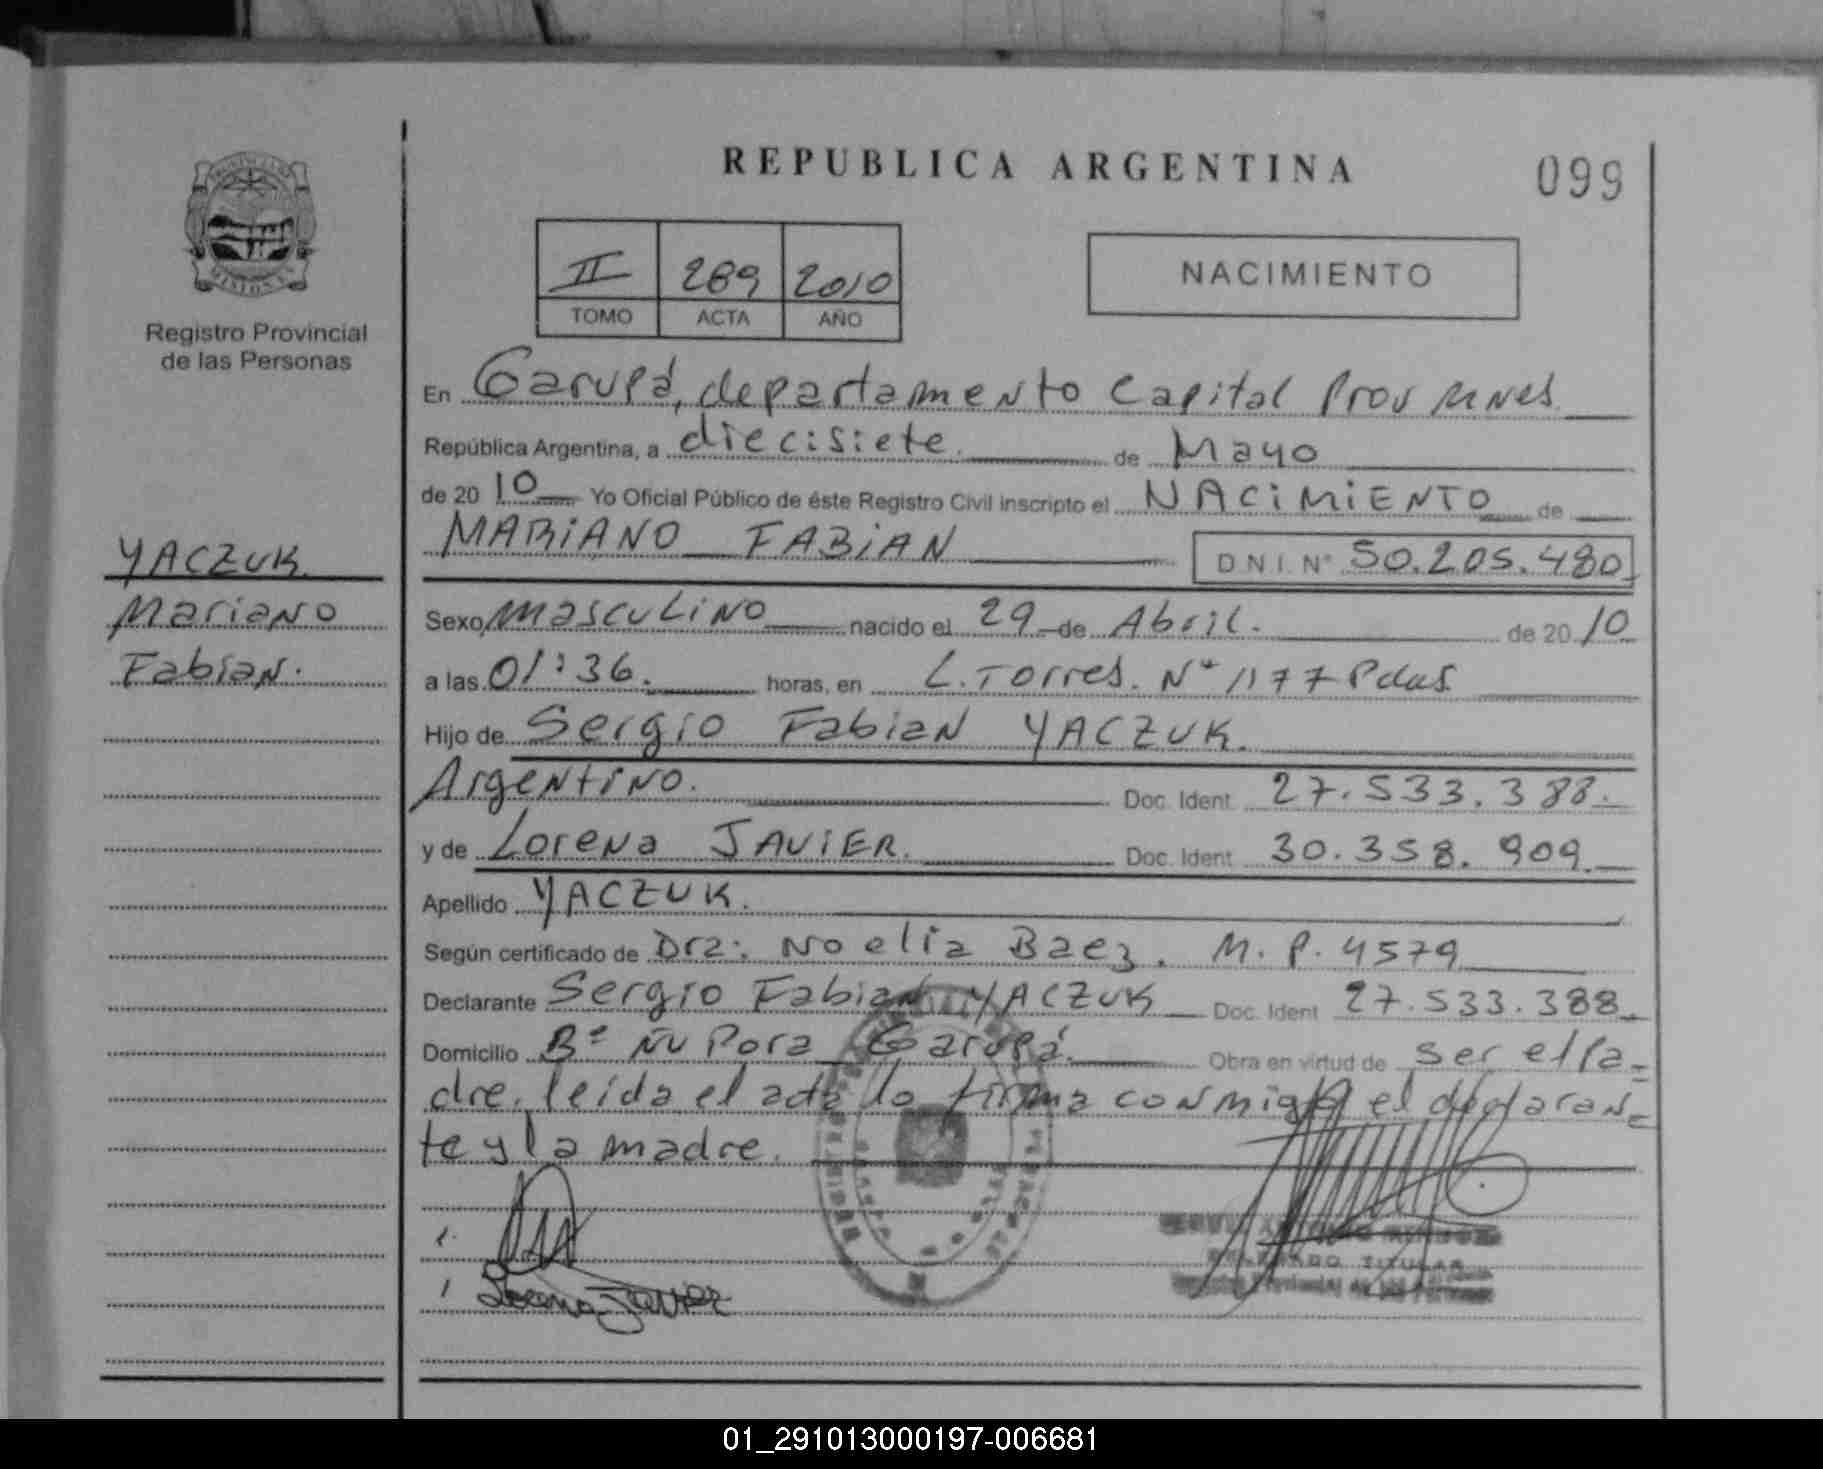 REPUBLICA ARGENTINA
099
PROVINCIA DE
MISIONES
Registro Provincial
de las Personas
II 269 2010
TOMO ACTA AÑO
NACIMIENTO
En Garupá, departamento Capital Prov Mnes
República Argentina, a diecisiete. de Mayo
de 2010 Yo Oficial Público de éste Registro Civil inscripto el NACIMIENTO de
MARIANO FABIAN D.N.I. Nº 50.205.480
YACZUK
Mariano
Fabian.
Sexo masculino nacido el 29 de Abril. de 2010
a las 01:36. horas, en L. Torres. Nº 1177 Pdas.
Hijo de Sergio Fabian YACZUK.
Argentino. Doc. Ident. 27.533.388.
y de Lorena JAVIER. Doc. Ident. 30.358.909.
Apellido YACZUK.
Según certificado de Dra: Noelia Baez. M.P. 4579
Declarante Sergio Fabian YACZUK Doc. Ident 27.533.388.
Domicilio Bº Ñu Pora Garupá. Obra en virtud de ser el pa-
dre. leída el acta la firma conmigo el declaran-
te y la madre.
Lorena Javier
TITULAR
01_291013000197-006681